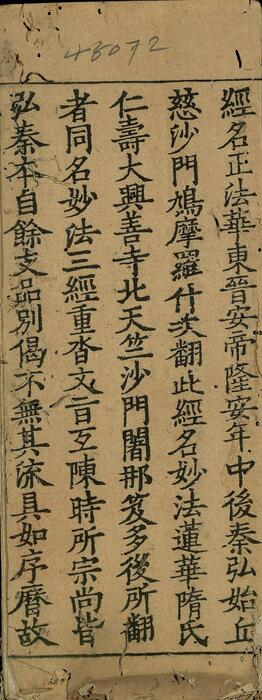 48072
經名正法華東晉安帝隆安年中後秦弘始丘
慈沙門鳩摩羅什次翻此經名妙法蓮華隋氏
仁壽大興善寺北天竺沙門闍那笈多後所翻
者同名妙法三經重沓文言互陳時所宗尚皆
弘秦本自餘支品別偈不無其流具如序曆故